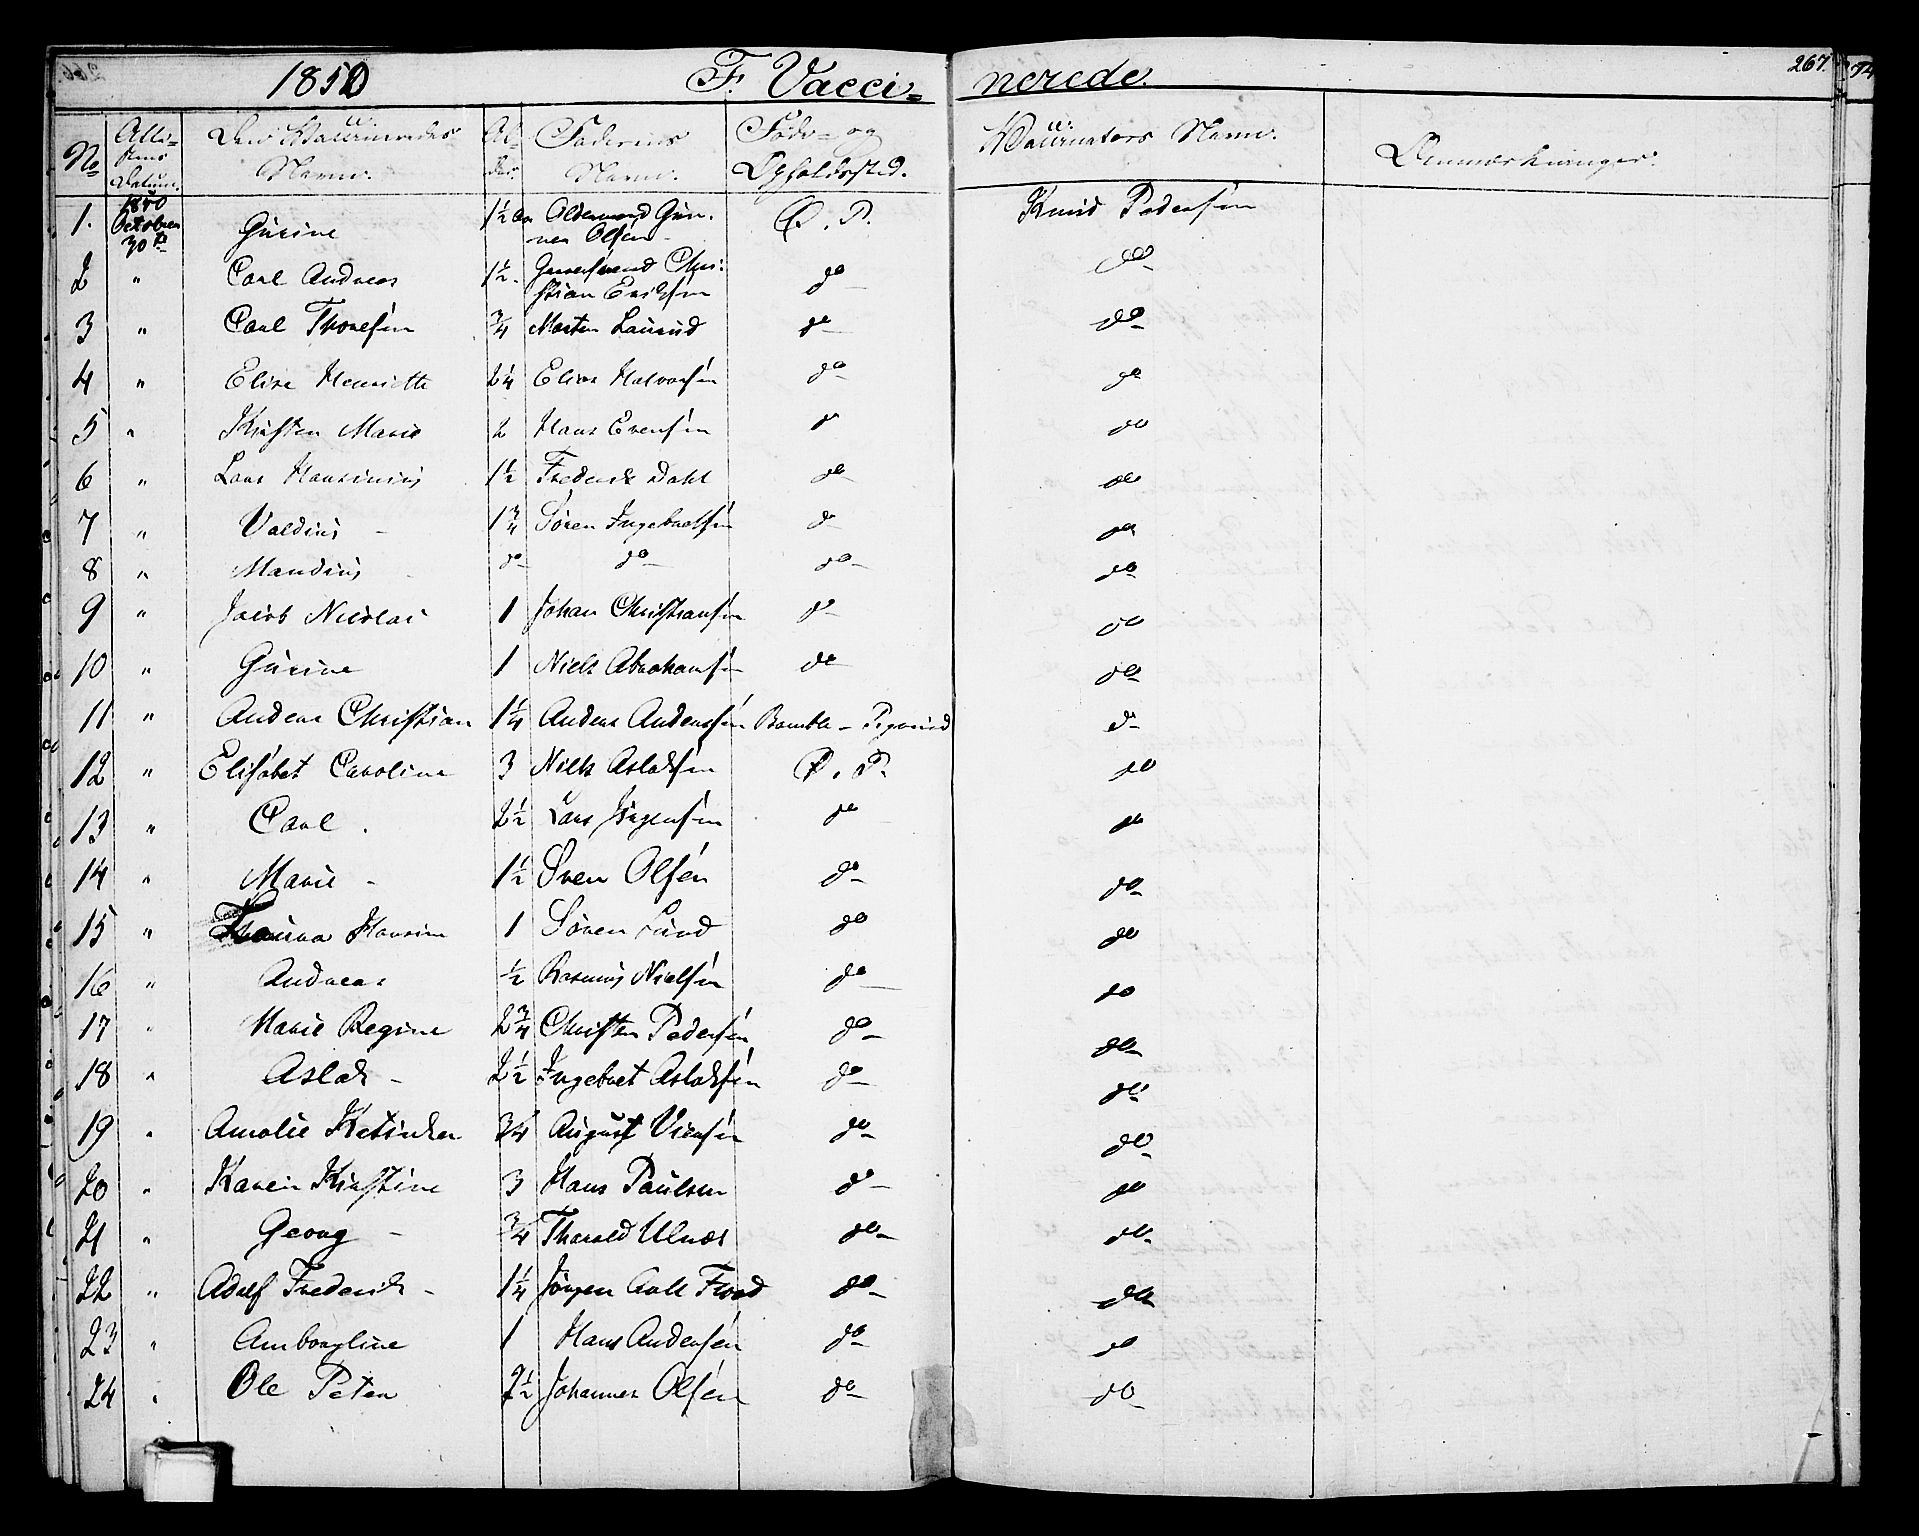 1850 F. Vacci= nerede. 267.
No Atte= stens Datum. Den Vaccineredes Navn. Al- der. Faderens Navn. Føde- og Opholdssted. Vaccinators Navn. Anmærkninger.
1. 1850 October 30te Gurine 1½ Gun- nar Olsen P. P. Knud Pedersen
2 " Carl Andreas 1½. Chri- stian Eriksen do do
3 " Carl Thoresen ¾ Morten Laurud do do
4 " Elise Henriette 2¼ Elias Halvorsen do do
5 " Kirsten Marie 2 Hans Evensen do do
6 " Lars Hansinius 1½ Frederik Dahl do do
7 " Valdius 1¾ Søren Ingebretsen do do
8 " Mandius do do do do
9 " Jacob Nicolai 1 Johan Christiansen do do
10 " Gurine 1 Niels Abrahamsen do do
11 " Anders Christian 1¼ Anders Andersen Bamble - do
12 " Elisabet Caroline 3 Niels Aslaksen P. P. do
13 " Carl. 2½ Lars Jørgensen do do
14 " Marie 1½ Sven Olsen do do
15 " Hansine 1 Søren Lund do do
16 " Andreas ½ Rasmus Nielsen do do
17 " Marie Regine 2¾ Christen Pedersen do do
18 " Aslak 2½ Ingebret Aslaksen do do
19 " Amalie ¾ August do do
20 " Karen Kirstine 3 Hans Paulsen do do
21 " Georg ¾ Tharald Ulnes do do
22 " Adolf Frederik 1¼ Jørgen Aall Flood do do
23 " Amborgline 1 Hans Andersen do do
24 " Ole Peter 2½ Johannes Olsen do do